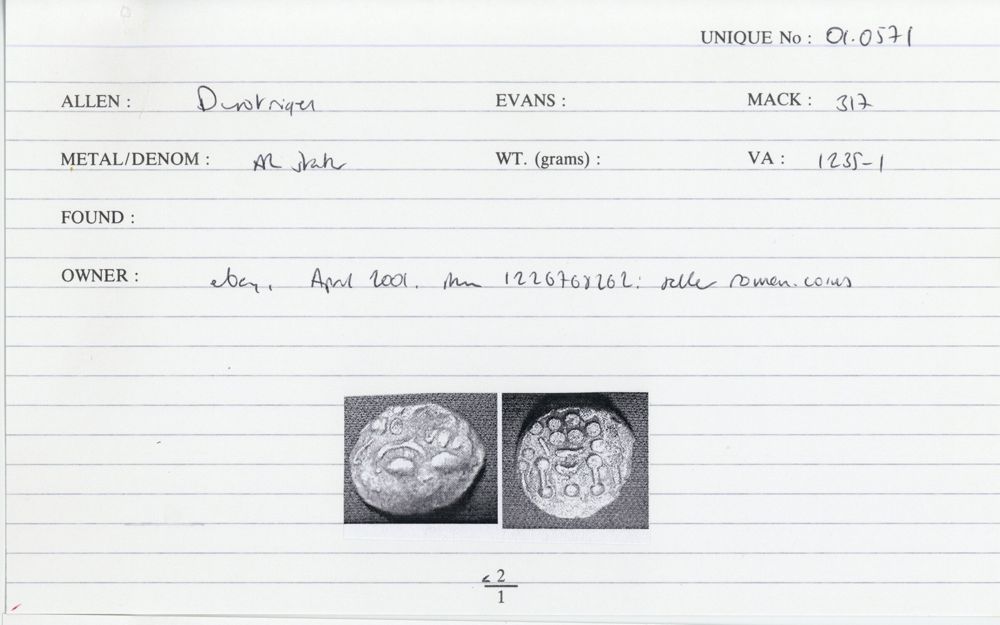 UNIQUE No : 01.0571
ALLEN : Durotriges EVANS : MACK : 317
METAL/DENOM : AR stater WT. (grams) : VA : 1235-1
FOUND :
OWNER : ebay, April 2001. item 1226768262: seller roman.coins
< 2
1